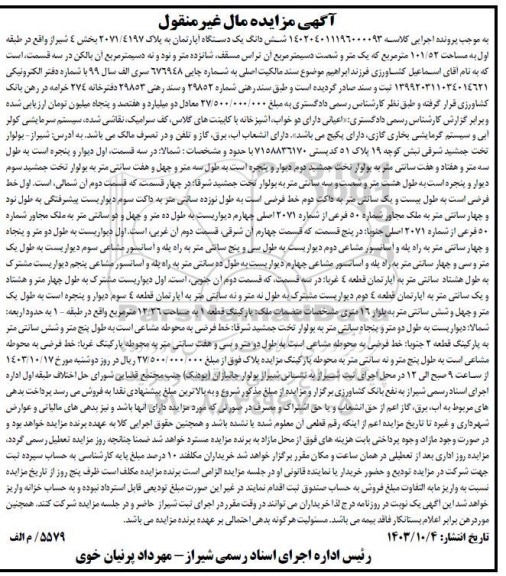 آگهی مزایده مال غیر منقول
به موجب پرونده اجرایی کلاسه ۱۴۰۲۰۴۰۱۱۱۹۶۰۰۰۰۹۳ شش دانگ یک دستگاه آپارتمان به پلاک ۲۰۷۱/۴۱۹۷ بخش ۴ شیراز واقع در طبقه
اول به مساحت ۱۰۱/۵۲ مترمربع که یک متر و شصت دسیمترمربع آن تراس مسقف، شانزده متر و نود و نه دسیمترمربع آن بالکن در سه قسمت، است
که به نام آقای اسماعیل کشاورزی فرزند ابراهیم موضوع سند مالکیت اصلی به شماره چاپی ۶۷۶۹۴۸ سری الف سال ۹۹ با شماره دفتر الکترونیکی
۱۳۹۹۲۰۳۱۱۰۳۴۰۱۴۶۲۱ ثبت و سند صادر گردیده است و طبق سند رهنی شماره ۲۹۸۵۳ و سند رهنی ۲۹۸۵۳ دفترخانه ۲۷۴ خرامه در رهن بانک
کشاورزی قرار گرفته و طبق نظر کارشناس رسمی دادگستری به مبلغ ۲۷/۵۰۰/۰۰۰/۰۰۰ معادل دو میلیارد و هفتصد و پنجاه میلیون تومان ارزیابی شده
و برابر گزارش کارشناس رسمی دادگستری: «اعیانی دارای دو خواب، آشپزخانه با کابینت های کلاس، کف سرامیک، نقاشی شده، سیستم سرمایشی کولر
آبی و سیستم گرمایشی بخاری گازی، دارای پکیج می باشد». دارای انشعاب آب، برق، گاز و تلفن و در تصرف مالک می باشد. به آدرس: شیراز- بولوار
تخت جمشید شرقی نبش کوچه ۱۹ پلاک ۵۱ کدپستی ۷۱۵۸۸۳۶۱۷۰ با حدود و مشخصات: شمالا: در سه قسمت، اول دیوار و پنجره است به طول
سه متر و هفتاد و هفت سانتی متر به بولوار تخت جمشید دوم دیوار و پنجره است به طول سه متر و چهل و هفت سانتی متر به بولوار تخت جمشید سوم
دیوار و پنجره است به طول هشت متر و شصت و سه سانتی متر به بولوار تخت جمشید شرقا: در چهار قسمت، که قسمت دوم آن شمالی، است. اول خط
فرضی است به طول بیست و یک سانتی متر به داکت دوم خط فرضی است به طول نوزده سانتی متر به داکت سوم دیواریست پیشرفتگی به طول نود
و چهار سانتی متر به ملک مجاور شماره ۵۰ فرعی از شماره ۲۰۷۱ اصلی چهارم دیواریست به طول ده متر و چهل و دو سانتی متر به ملک مجاور شماره
۵۰ فرعی از شماره ۲۰۷۱ اصلی جنوبا: در پنج قسمت، که قسمت چهارم آن شرقی، قسمت دوم آن غربی، است. اول دیواریست به طول دو متر و پنجاه
و چهار سانتی متر به راه پله و آسانسور مشاعی دوم دیواریست به طول سی و پنج سانتی متر به راه پله و آسانسور مشاعی سوم دیواریست به طول یک
متر و سی و چهار سانتی متر به راه پله و آسانسور مشاعی چهارم دیواریست به طول ده سانتی متر به راه پله و آسانسور مشاعی پنجم دیواریست مشترک
به طول هشتاد سانتی متر به آپارتمان قطعه ۴ غربا: در سه قسمت، که قسمت دوم آن جنوبی، است. اول دیواریست مشترک به طول چهار متر و هشتاد
و یک سانتی متر به آپارتمان قطعه ۴ دوم دیواریست مشترک به طول نه متر و نه سانتی متر به آپارتمان قطعه ۴ سوم دیوار و پنجره است به طول یک
متر و چهل و شش سانتی متر به بلوار ۱۶ متری مشخصات منضمات ملک: پارکینگ قطعه ۱ به مساحت ۱۲/۳۶ مترمربع واقع در طبقه -۱ به حدود اربعه:
شمالا: دیواریست به طول دو متر و پنجاه سانتی متر به بولوار تخت جمشید شرقا: خط فرضی به محوطه مشاعی است به طول پنج متر و شش سانتی متر
به پارکینگ قطعه ۲ جنوبا: خط فرضی به محوطه مشاعی است به طول دو متر و سی و هفت سانتی متر به محوطه پارکینگ غربا: خط فرضی به محوطه
مشاعی است به طول پنج متر و نه سانتی متر به محوطه پارکینگ مزایده پلاک فوق از مبلغ ۲۷/۵۰۰/۰۰۰/۰۰۰ ریال در روز دوشنبه مورخ ۱۴۰۳/۱۰/۱۷
از ساعت ۹ صبح الی ۱۲ در محل اجرای ثبت اسناد به نشانی شیراز بولوار جانبازان (بودنک) جنب مجتمع قضایی شورای حل اختلاف طبقه اول اداره
اجرای اسناد رسمی شیراز به نفع بانک کشاورزی برگزار و مزایده از مبلغ مذکور شروع و به بالاترین مبلغ پیشنهادی نقدا به فروش می رسد پرداخت بدهی
های مربوط به آب، برق، گاز اعم از حق انشعاب و یا حق اشتراک و مصرف در صورتی که مورد مزایده دارای آنها باشد و نیز بدهی های مالیاتی و عوارض
شهرداری و غیره تا تاریخ مزایده اعم از اینکه رقم قطعی آن معلوم شده یا نشده باشد و همچنین حقوق اجرایی کلا به عهده برنده مزایده خواهد بود و
در صورت وجود مازاد وجوه پرداختی بابت هزینه های فوق از محل مازاد به برنده مزایده مسترد خواهد شد ضمنا چنانچه روز مزایده تعطیل رسمی گردد،
مزایده روز اداری بعد از تعطیلی در همان ساعت و مکان مقرر برگزار خواهد شد خریداران مکلفند ۱۰ درصد مبلغ پایه کارشناسی به حساب سپرده ثبت
جهت شرکت در مزایده تودیع و حضور خریدار یا نماینده قانونی او در جلسه مزایده الزامی است برنده مزایده مکلف است ظرف پنج روز از تاریخ مزایده
نسبت به واریز مابه التفاوت مبلغ فروش به حساب صندوق ثبت اقدام نمایند در غیر این صورت مبلغ تودیعی قابل استرداد نبوده و به حساب خزانه واریز
خواهد شد این آگهی یک نوبت در روزنامه درج لذا خریداران می توانند در وقت مقرر در اجرای ثبت شیراز حاضر و در جلسه مزایده شرکت کنند. همچنین
مورد رهن برابر اعلام بستانکار فاقد بیمه می باشد. مسئولیت هرگونه بدهی احتمالی بر عهده برنده مزایده می باشد.
تاریخ انتشار: ۱۴۰۳/۱۰/۴ ۵۵۷۹/ م الف
رئیس اداره اجرای اسناد رسمی شیراز – مهرداد پرنیان خوی